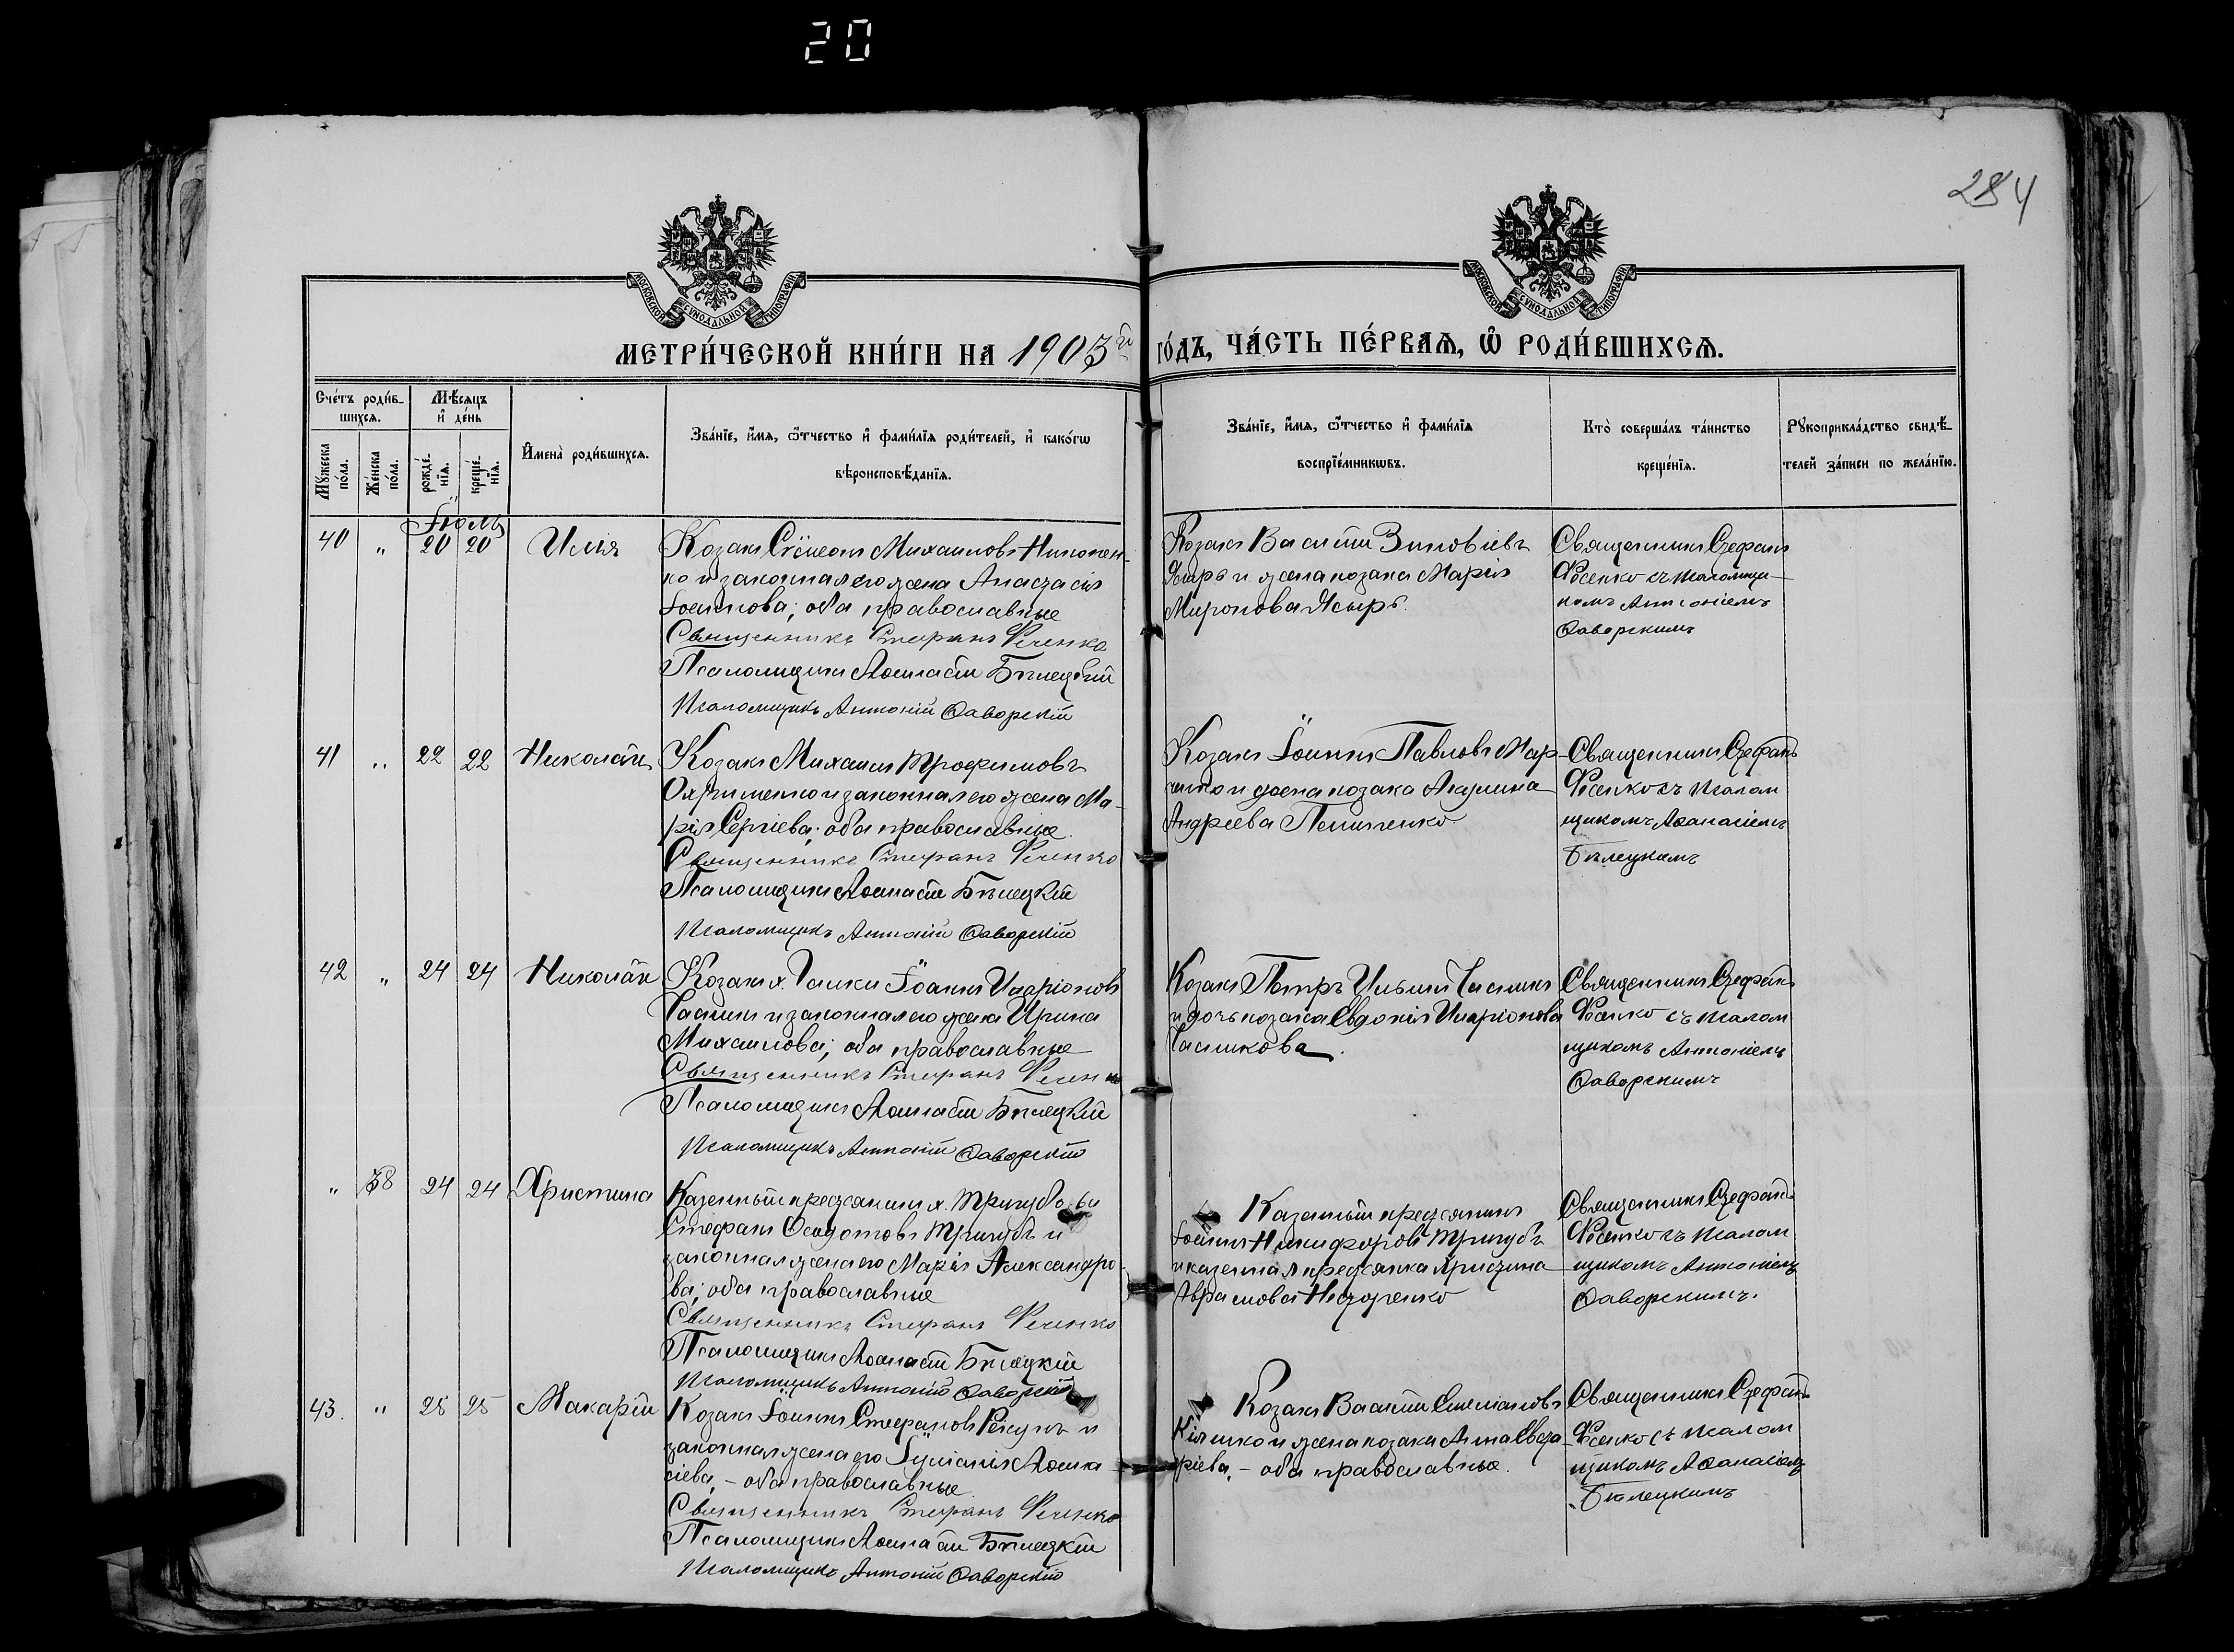 20
284
МОСКОВСКОЙ СѴНОДАЛЬНОЙ ТИПОГРАФІИ
МОСКОВСКОЙ СѴНОДАЛЬНОЙ ТИПОГРАФІИ
МЕТРИ́ЧЕСКОЙ КНИ́ГИ НА 1903й ГО́ДЪ, ЧА́СТЬ ПЕ́РВАѦ, Ѡ РОДИ́ВШИХСѦ.
Сче́тъ роди́в-
шихсѧ.
Мѣ́сѧцъ
и҆ де́нь
Мꙋ́жеска по́ла.
Же́нска по́ла.
рожде́-
нїѧ.
креще́-
нїѧ.
И҆мена̀ роди́вшихсѧ.
Зва́нїе, и҆́мѧ, ѻ҆́тчество и҆ фами́лїѧ роди́телей, и҆ како́гѡ
вѣроисповѣ́данїѧ.
Зва́нїе, и҆́мѧ, ѻ҆́тчество и҆ фами́лїѧ
воспрїе́мникѡвъ.
Кто̀ соверша́лъ та́инство
креще́нїѧ.
Рꙋкоприкла́дство свидѣ́-
телей за́писи по жела́нїю.
Іюль
40 " 20 20 Илія
Козакъ Сѵмеонъ Михаиловъ Никонен-
ко и законная его жена Анастасія
Іоаннова; оба православные
Священникъ Стефанъ Фесенко
Псаломщикъ Аѳанасій Бѣлецкій
Псаломщикъ Антоній Ѳаворскій
Козакъ Василій Зиновіевъ
Ясыръ и жена козака Марія
Миронова Ясыръ.
Священникъ Стефанъ
Фесенко съ псаломщи-
комъ Антоніемъ
Ѳаворскимъ
41 " 22 22 Николай
Козакъ Михаилъ Трофимовъ
Охрименко и законная его жена Ма-
рія Сергіева; оба православные.
Священникъ Стефанъ Фесенко
Псаломщикъ Аѳанасій Бѣлецкій
Псаломщикъ Антоній Ѳаворскій
Козакъ Іоаннъ Павловъ Мар-
и жена козака Акулина
Андреева
Священникъ Стефанъ
Фесенко съ псалом
щикомъ Аѳанасіемъ
Бѣлецкимъ
42 " 24 24 Николай
Козакъ х. Іоаннъ Иларіоновъ
и законная его жена Ирина
Михаилова; оба православные
Священникъ Стефанъ Фесенко
Псаломщикъ Аѳанасій Бѣлецкій
Псаломщикъ Антоній Ѳаворскій
Козакъ Петръ Ильинъ
и дочь козака Евдокія Иларіонова
Священникъ Стефанъ
Фесенко съ псалом
щикомъ Антоніемъ
Ѳаворскимъ
" 38 24 24 Христина
Казенный крестьянинъ х.
Стефанъ Ѳедотовъ Тригубъ и
законная жена его Марія Александро-
ва; оба православные
Священникъ Стефанъ Фесенко
Псаломщикъ Аѳанасій Бѣлецкій
Псаломщикъ Антоній Ѳаворскій
Казенный крестьянинъ
Іоаннъ Никифоровъ Тригубъ
и казенная крестьянка Христина
Аврамова Несторенко
Священникъ Стефанъ
Фесенко съ псалом
щикомъ Антоніемъ
Ѳаворскимъ.
43. " 25 25 Макарій
Козакъ Іоаннъ Стефановъ Рекунъ и
законная жена его Іуліанія Аѳана
сіева, - оба православные.
Священникъ Стефанъ Фесенко
Псаломщикъ Аѳанасій Бѣлецкій
Псаломщикъ Антоній Ѳаворскій
Козакъ Василій
и жена козака Анна Евста
фіева, - оба православные.
Священникъ Стефанъ
Фесенко съ псалом
щикомъ Аѳанасіемъ
Бѣлецкимъ